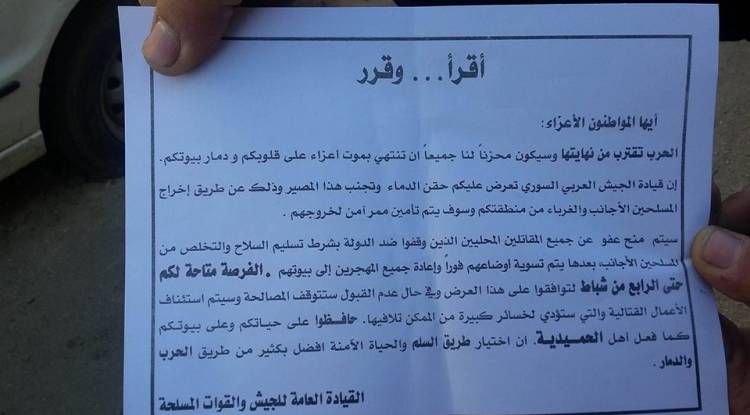 أقرأ... وقرر
أيها المواطنون الأعزاء:
الحرب تقترب من نهايتها وسيكون محزناً لنا جميعاً ان تنتهي بموت أعزاء على قلوبكم و دمار بيوتكم.
إن قيادة الجيش العربي السوري تعرض عليكم حقن الدماء وتجنب هذا المصير وذلك عن طريق إخراج
المسلحين الأجانب والغرباء من منطقتكم وسوف يتم تأمين ممر آمن لخروجهم .
سيتم منح عفو عن جميع المقاتلين المحليين الذين وقفوا ضد الدولة بشرط تسليم السلاح والتخلص من
المسلحين الأجانب، بعدها يتم تسوية اوضاعهم فوراً وإعادة جميع المهجرين إلى بيوتهم . الفرصة متاحة لكم
حتى الرابع من شباط لتوافقوا على هذا العرض وفي حال عدم القبول ستتوقف المصالحة وسيتم استئناف
الأعمال القتالية والتي ستؤدي لخسائر كبيرة من الممكن تلافيها. حافظوا على حياتكم وعلى بيوتكم
كما فعل اهل الحميدية. ان اختيار طريق السلم والحياة الآمنة افضل بكثير من طريق الحرب
والدمار .
القيادة العامة للجيش والقوات المسلحة